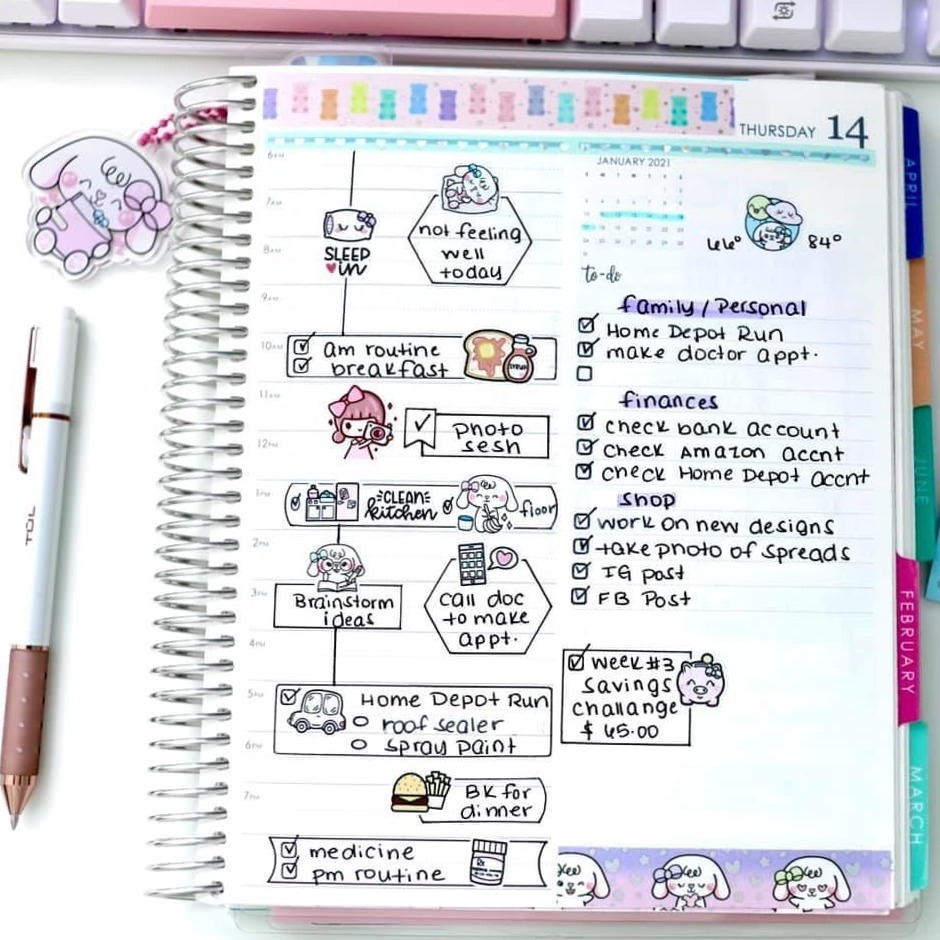 THURSDAY 14
JANUARY 2021
6AM
7AM
8AM
9AM
10AM
11AM
12PM
1PM
2PM
3PM
4PM
5PM
6PM
7PM
SLEEP
in
not feeling
well
today
am routine
breakfast
SYRUP
photo
sesh
CLEAN
kitchen
floor
Brainstorm
ideas
call doc
to make
appt.
Home Depot Run
roof sealer
spray paint
BK for
dinner
medicine
pm routine
Rx
66° 84°
to-do
family / Personal
Home Depot Run
make doctor appt.
finances
check bank account
check Amazon accnt
check Home Depot accnt
shop
work on new designs
take photo of spreads
IG post
FB Post
week #3
savings
challange
$ 45.00
APRIL
MAY
JUNE
FEBRUARY
MARCH
TUL